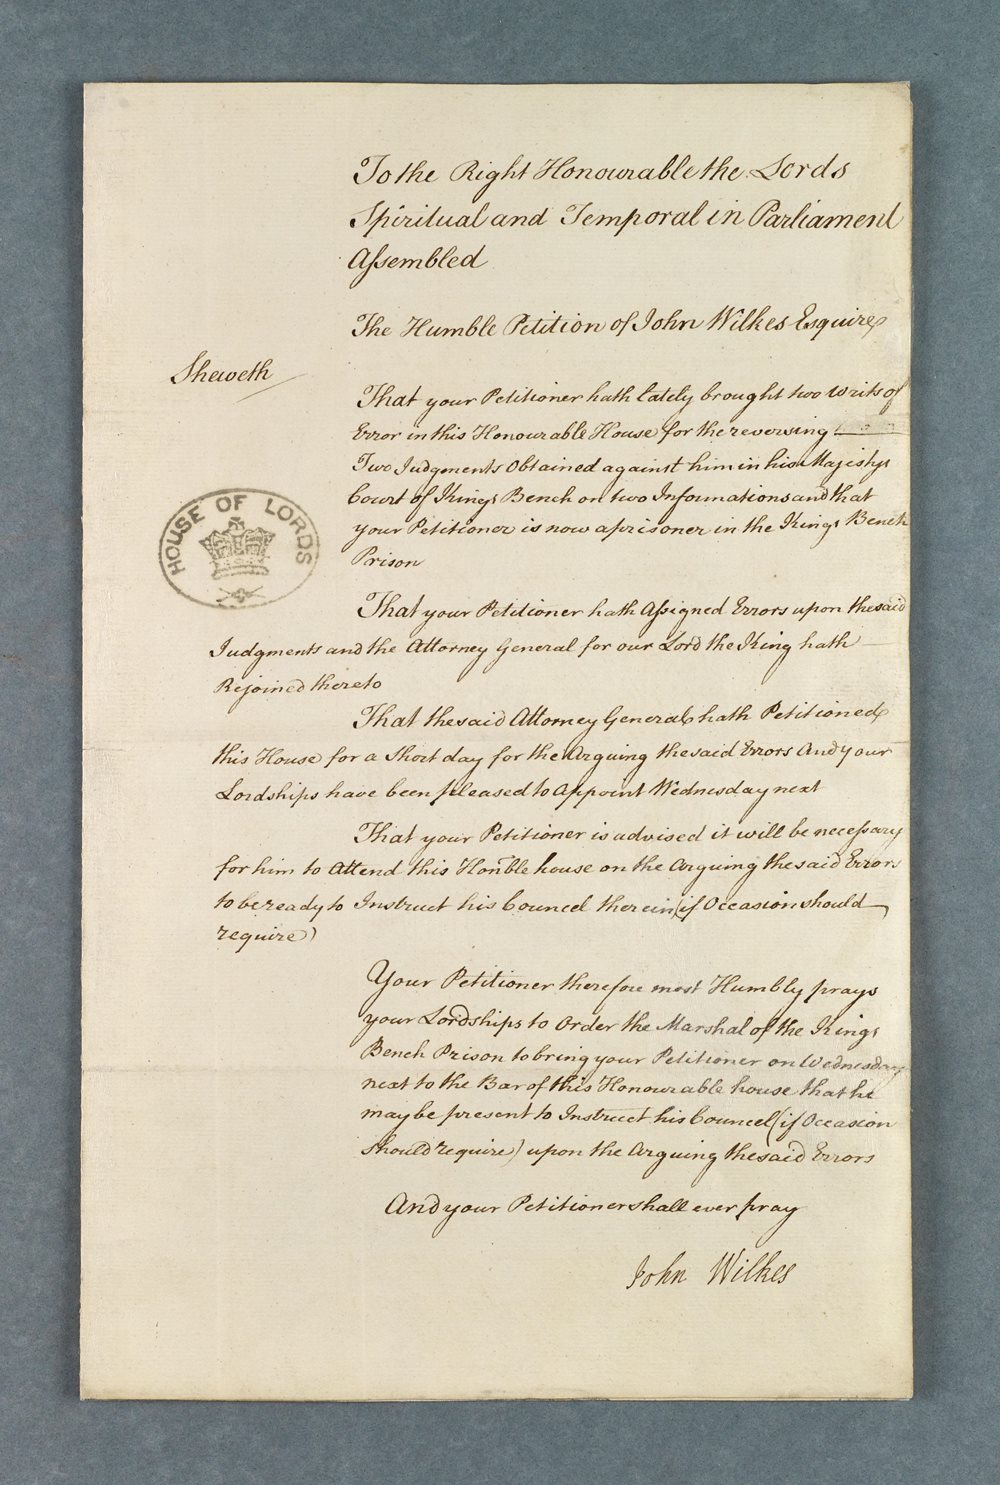 To the Right Honourable the Lords
Spiritual and Temporal in Parliament
Assembled
The Humble Petition of John Wilkes Esquire
Sheweth
That your Petitioner hath lately brought two Writs of
Error in this Honourable House for the reversing
Two Judgments Obtained against him in his Majestys
Court of Kings Bench on two Informations and that
your Petitioner is now a prisoner in the Kings Bench
Prison
HOUSE OF LORDS
That your Petitioner hath Assigned Errors upon the said
Judgments and the Attorney General for our Lord the King hath
Rejoined thereto
That the said Attorney General hath Petitioned
this House for a Short day for the Arguing the said Errors And your
Lordships have been pleased to Appoint Wednesday next
That your Petitioner is advised it will be necessary
for him to Attend this Honble house on the Arguing the said Errors
to be ready to Instruct his Councel therein (if Occasion should
require)
Your Petitioner therefore most Humbly prays
your Lordships to Order the Marshal of the Kings
Bench Prison to bring your Petitioner on Wednesday
next to the Bar of this Honourable house that he
may be present to Instruct his Councel (if Occasion
should require) upon the Arguing the said Errors
And your Petitioner shall ever pray
John Wilkes